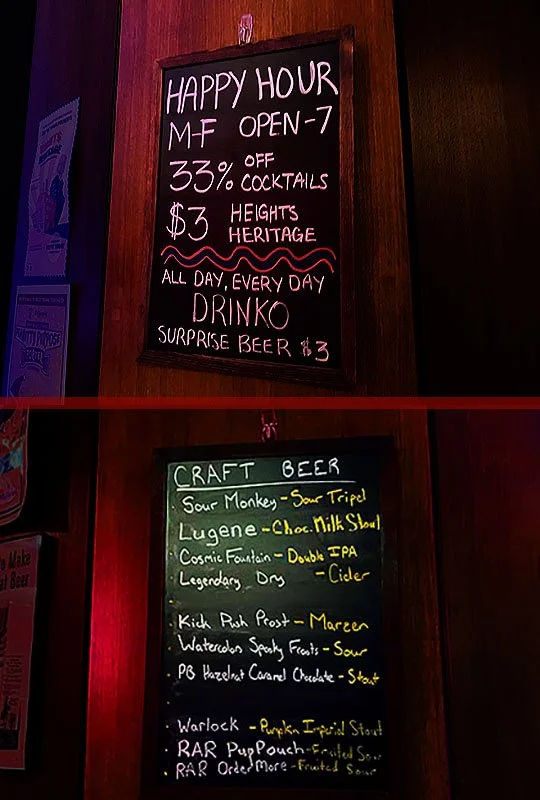 HAPPY HOUR
M-F OPEN-7
33% OFF COCKTAILS
$3 HEIGHTS HERITAGE
ALL DAY, EVERY DAY
DRINKO
SURPRISE BEER $3
CRAFT BEER
Sour Monkey - Sour Tripel
Lugene - Choc. Milk Stout
Cosmic Fountain - Double IPA
Legendary Dry - Cider
Kick Push Prost - Marzen
Sour
PB Hazelnut Caramel Chocolate - Stout
Warlock - Pumpkin Imperial Stout
RAR PupPouch - Fruited Sour
RAR Order More - Fruited Sour